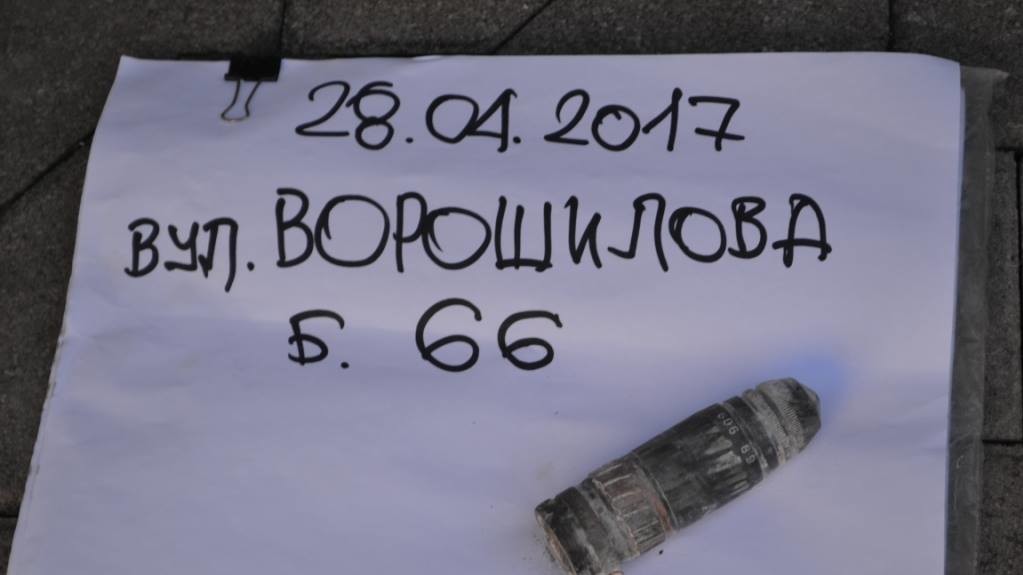 28.04.2017
ВУЛ. ВОРОШИЛОВА
Б. 66